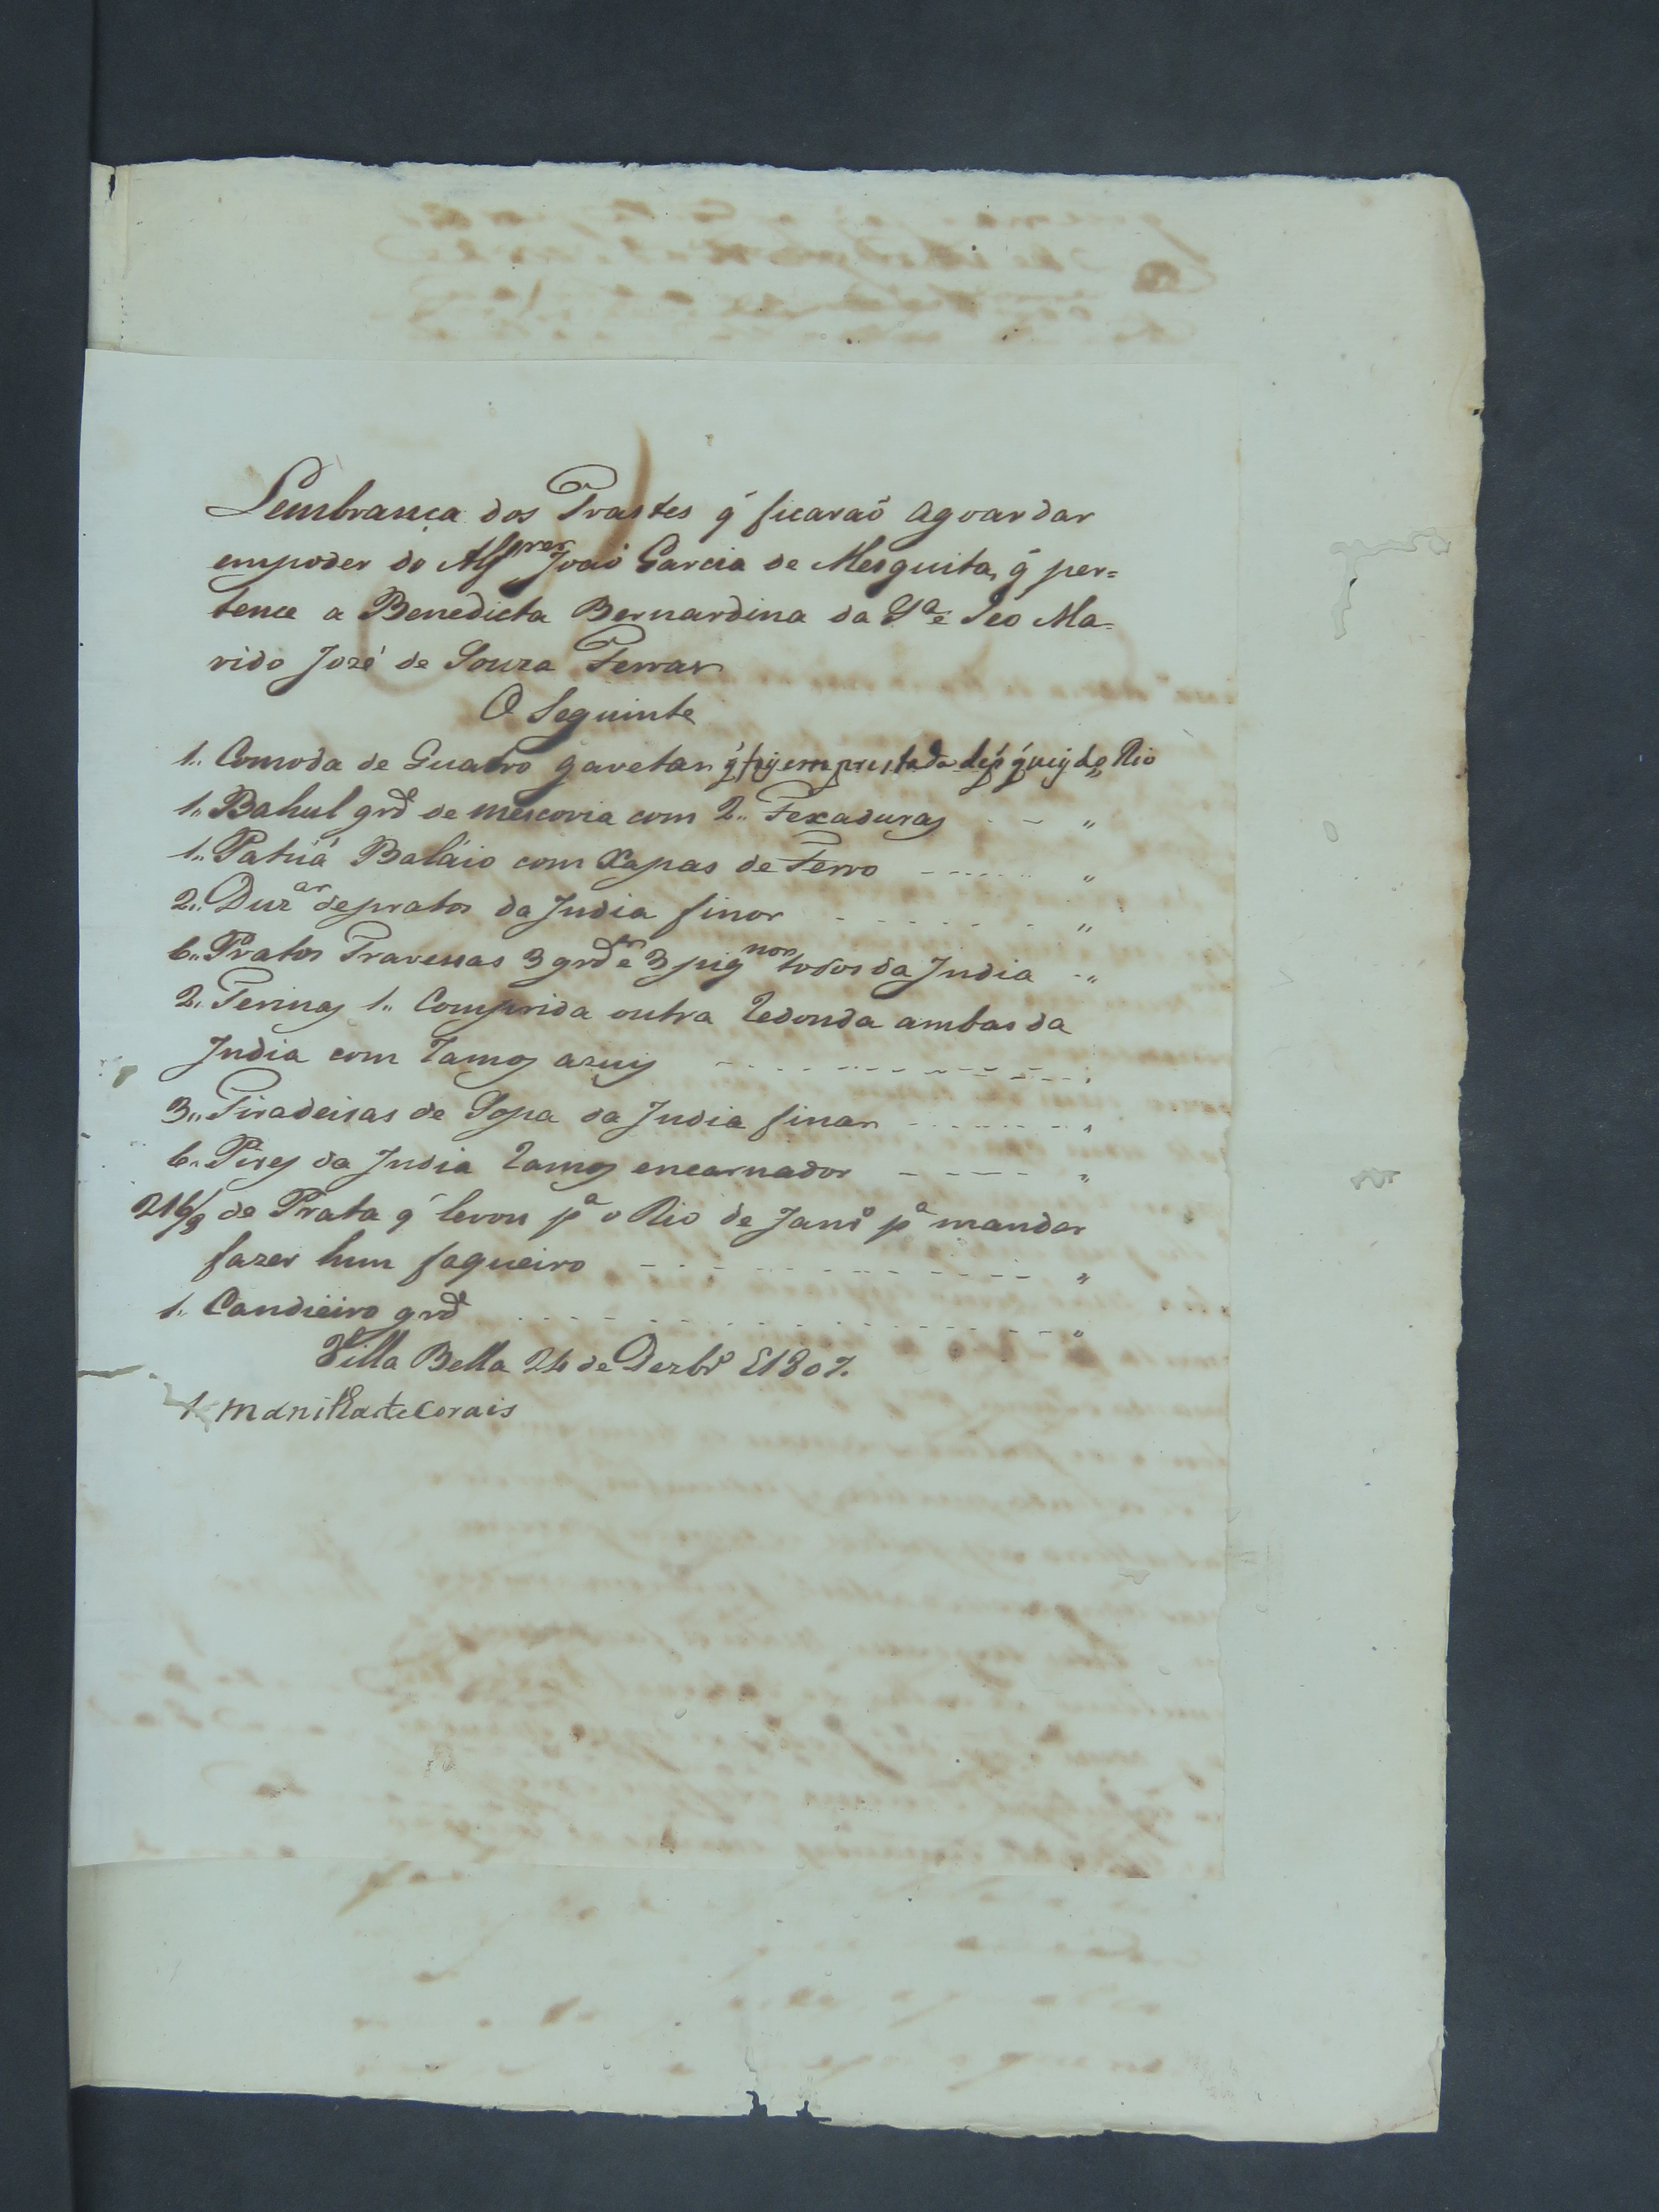 Lembrança dos Trastes q̃ ficaraõ aguardar
empoder do Alf.res Joaõ Garcia de Mesquita, q̃ per=
tence a Benedicta Bernardina da S.ª e Seo Ma=
rido Jozé de Souza Ferras
O Seguinte
1,, Comoda de Quatro gavetas q̃ foy emprestada q̃ veiy do Rio
1,, Bahul grd.e de mescovia com 2,, Fexaduras - - ,,
1,, Patuá Baláio com Xapas de Ferro - - - - ,,
2,, Duz.as depratos da India finos - - - - - - ,,
6,, Pratos Travessas 3 grd.es e 3 piq.nos todos da India - ,,
2,, Terinas 1,, Comprida outra Redonda ambas da
India com Ramos azuis - - - - - - - - - - ,,
3,, Tiradeiras de Sopa da India finas - - - - - - ,,
6,, Pires da India Ramos encarnados - - - - - ,,
216/8 de Prata q̃ levou p.ª o Rio de Jan.ro p.ª mandar
fazer hum faqueiro - - - - - - - - - - - ,,
1,, Candieiro grd.e - - - - - - - - - - - - - - ,,
Villa Bella 24 de Dezbr.o d 1807.
1 manilha de Corais